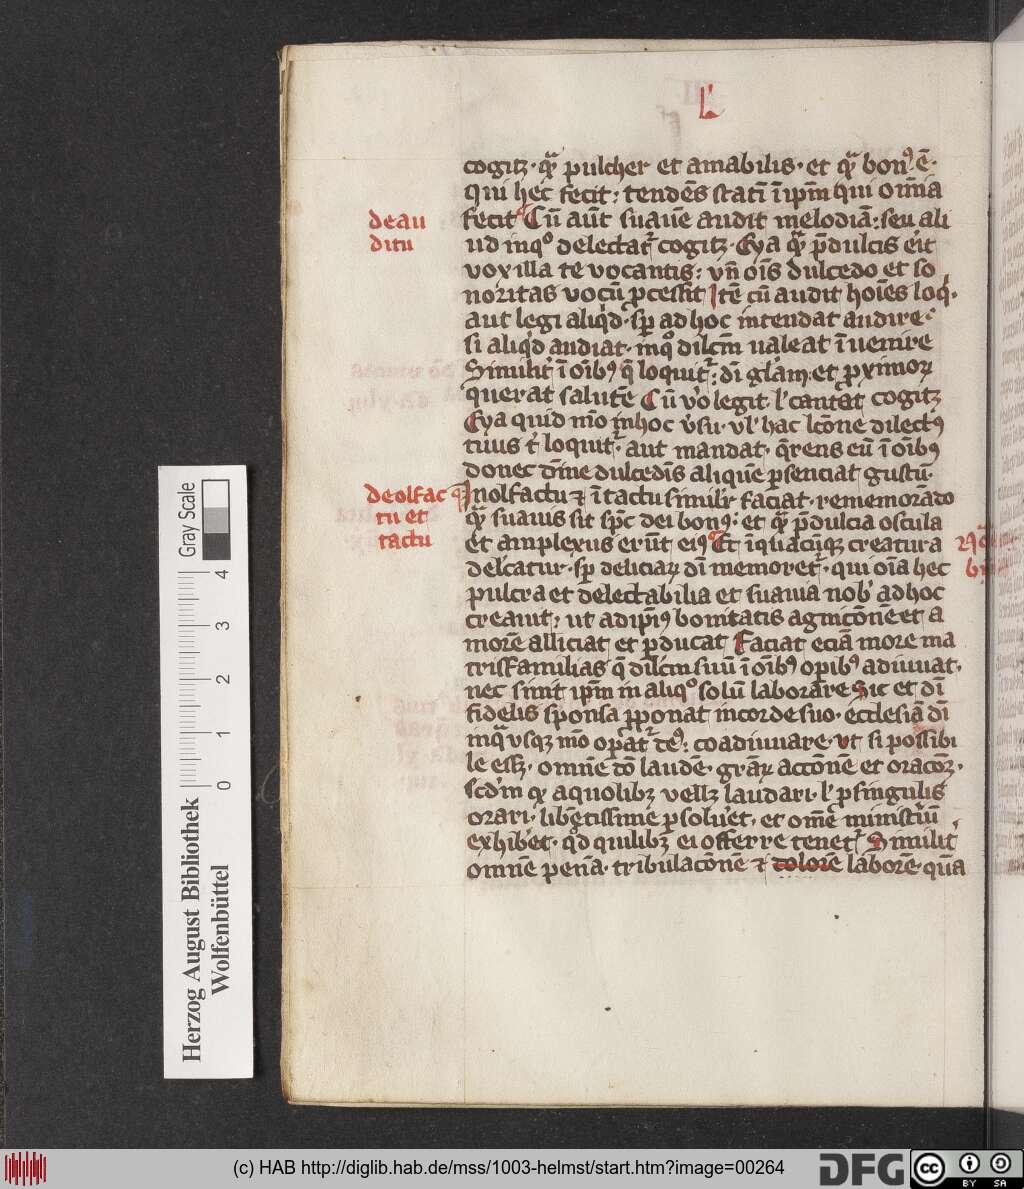 L'
cogitꝫ · qͣ pulcher et amabilis · et qͣ bonꝰ ē ·
qui hec fecit : tendēs statī ī ip̄m qui om̄ia
de au
ditu
fecit Cū aūt suaue audit melodiā : seu ali
ud in qͦ delectatᷣ cogitꝫ · Eya qͣ p̄dulcis erit
vox illa te vocantis : vn̄ oīs dulcedo et so
noritas vocū ꝓcessit Itē cū audit hoīes loqͥ ·
aut legi aliqͥd · sꝑ ad hoc intendat audire ·
si aliqͥd audiat · in qͦ dilc̄m ualeat īuenire
Similit̓ ī oībꝰ q̄ loquitᷣ : di gl̄am · et ꝓximoꝝ
querat salutē Cū v̓o legit · l' cantat cogitꝫ
Eya quid mō in hoc v̓su · vl' hac lc̄one dilectꝰ
tuus t' loquitᷣ · aut mandat · q̄rens eū ī oībꝰ
donec diīne dulcedīs aliquē ꝑsenciat gustū ·
de olfac
tu et
tactu
In olfactu ⁊ ī tactu simil'r faciat · rememorādo
qͣ suauis sit sp̄c dei bonꝰ : et qͣ p̄dulcia oscula
et amplexus erūt eiꝰ Et ī quacūqꝫ creatura
delc̄atur · sꝑ deliciaꝝ di memoretᷣ · qui oīa hec
pulcra et delectabilia et suauia nob' ad hoc
creauit : ut ad ip̄iꝰ bonitatis agnicōnē et a
morē alliciat et ꝑducat Faciat eciā more ma
tris familias q̄ dilc̄m suū ī oībꝰ oꝑibꝰ adiuuat ·
nec sinit ip̄m in aliqͦ solū laborare Sic et di
fidelis sponsa ꝓponat in corde suo · ecclesiā di
in qͣ vsqꝫ mō oꝑatᷣ deꝰ : coadiuuare · vt si possibi
le essꝫ · omnē dō laudē · gr̄aꝝ accōnē et oracōꝫ ·
scd̄m qꝛ a quolibꝫ vellꝫ laudari · l' ꝑ singulis
orari · libētissime ꝑsolu̓et · et om̄e minist̓iū
exhib̓et · qͥd quilibꝫ ei offerre tenetᷣ Similit̓
omnē penā · tribulacōnē ⁊ dolorē laborē · quā
Herzog August Bibliothek
Wolfenbüttel
Gray Scale
0 1 2 3 4
(c) HAB http://diglib.hab.de/mss/1003-helmst/start.htm?image=00264
DFG
cc BY SA